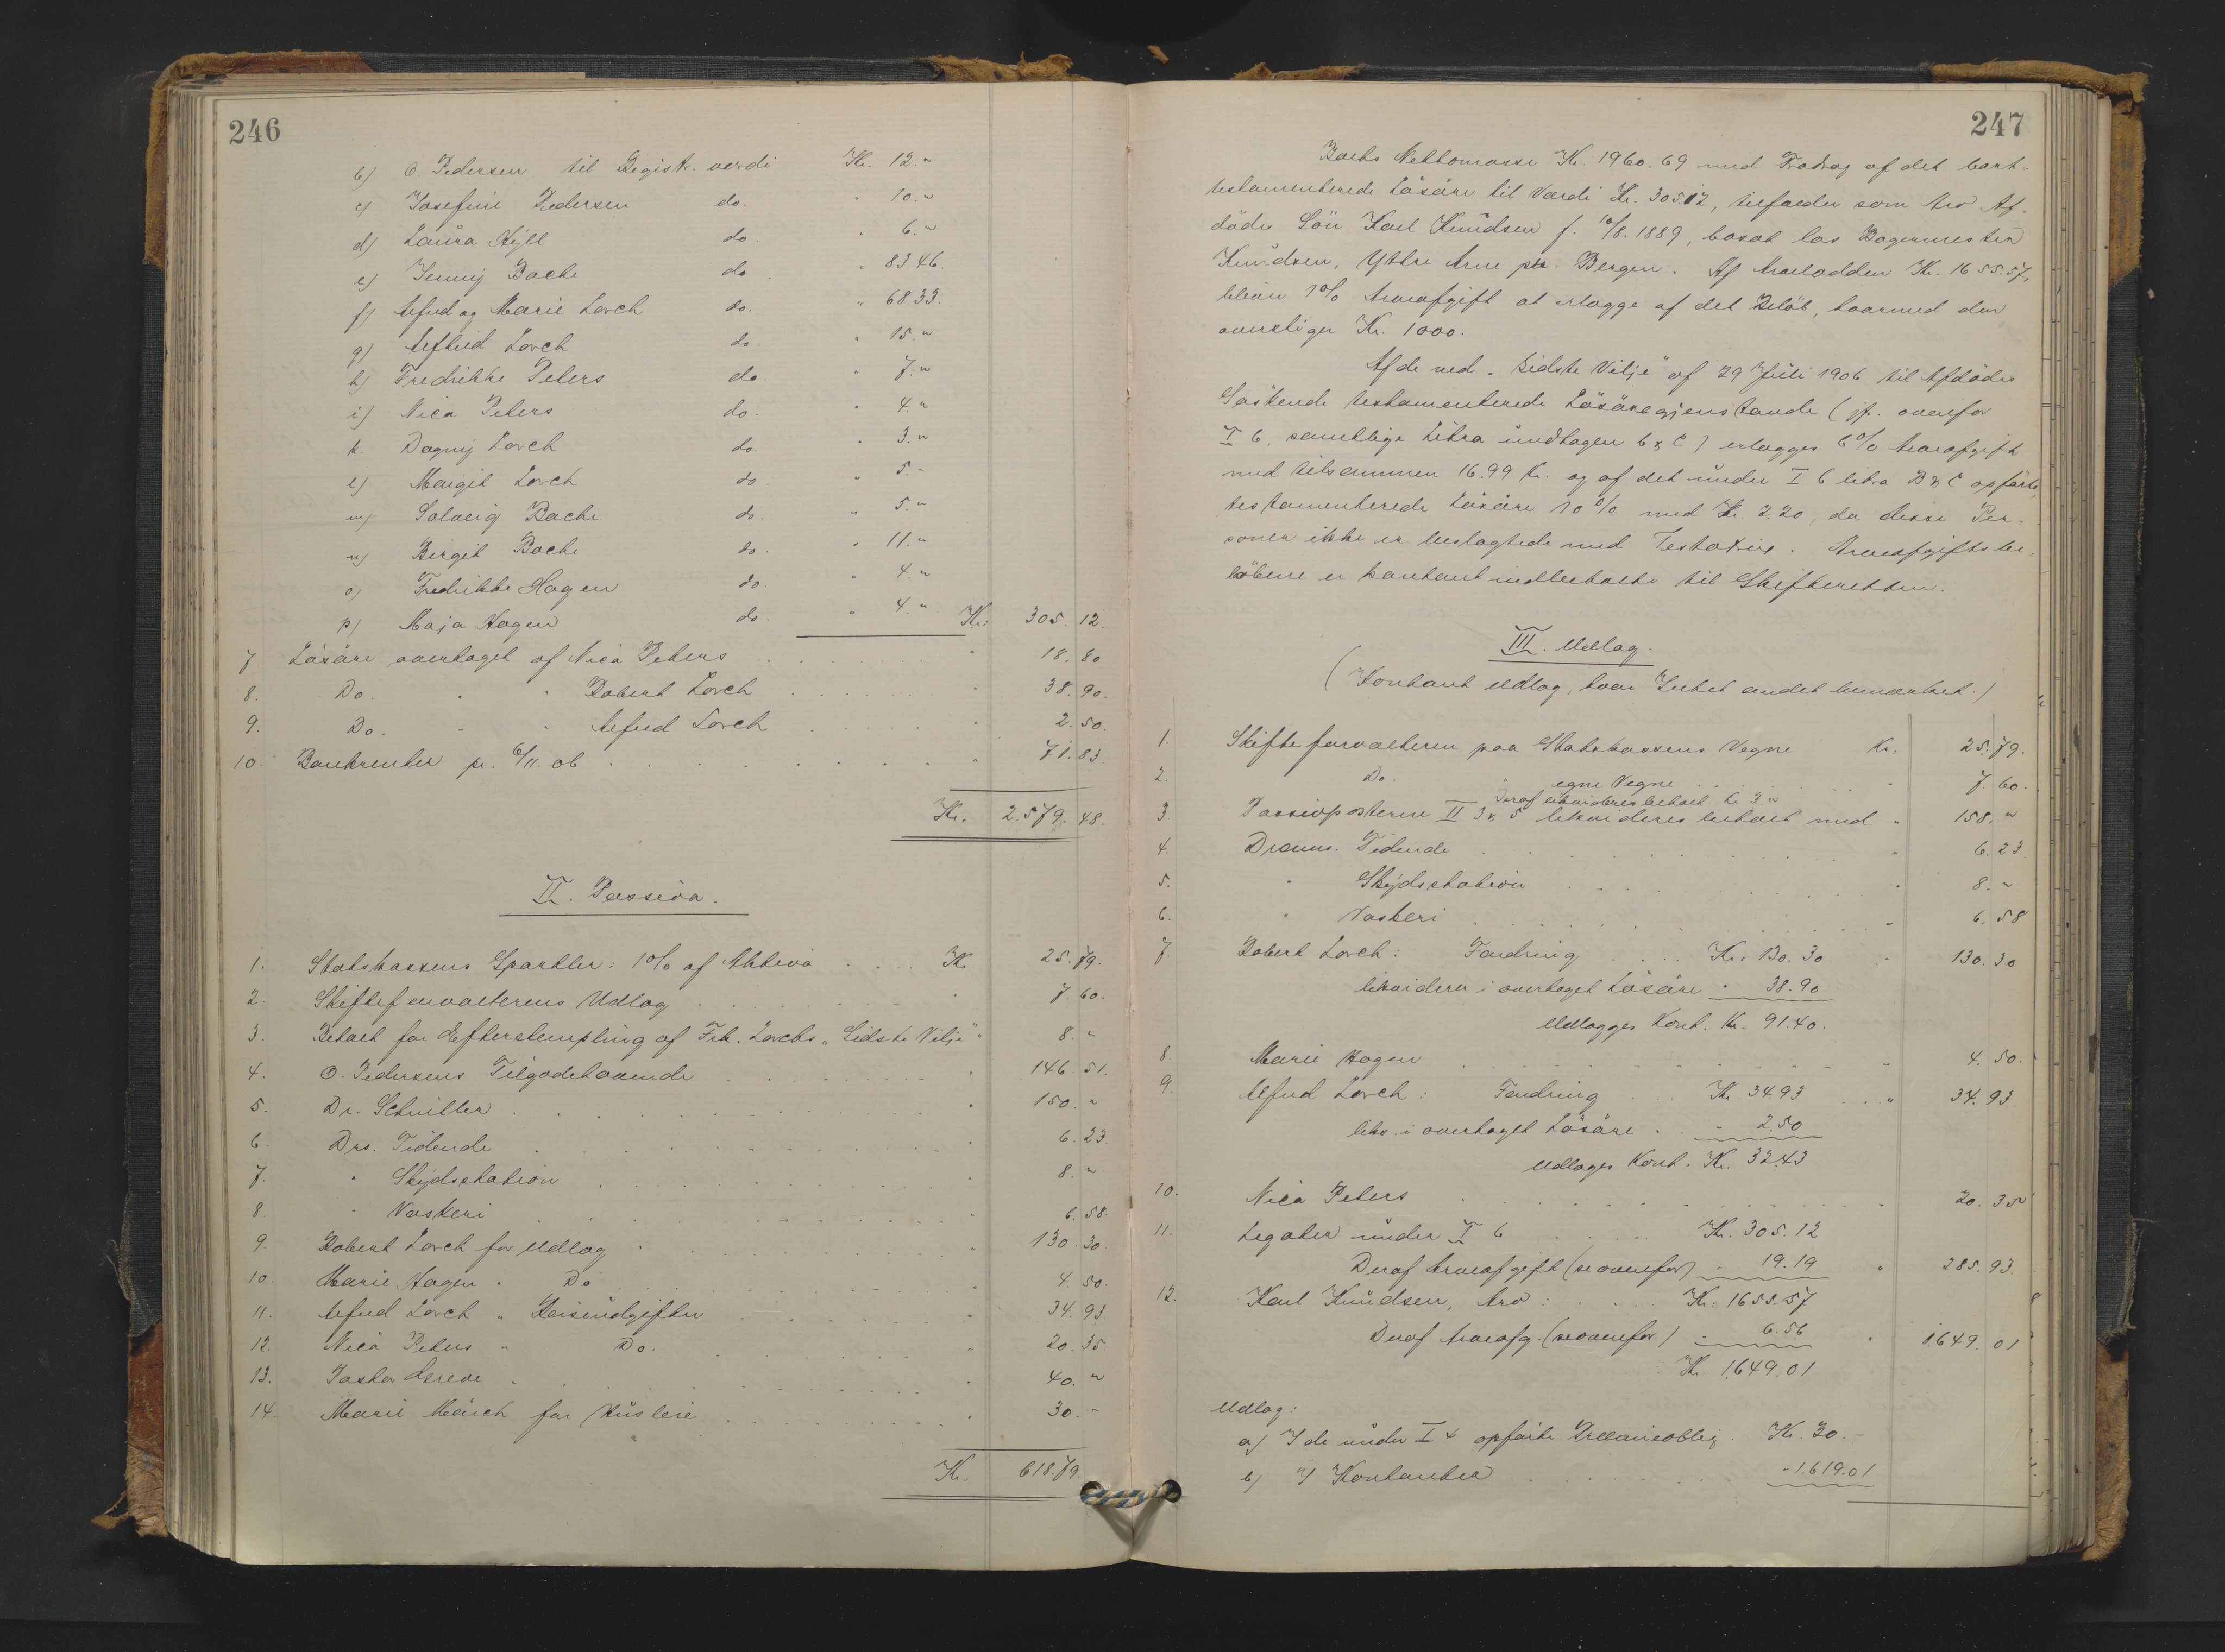 246
b) O. Pedersen til Registr. verdi Kr. 12.„
c) Josefine Pedersen do. „ 10.„
d) Laura Kyll do. „ 6.„
e) Jenny Bache do „ 83 46.
f) Alfred og Marie Lorch do. „ 68.33.
g) Alfred Lorch do. „ 15.„
h) Fredrikke Peters do. „ 7.„
i) Nica Peters do. „ 4.„
k. Dagny Lorch do. „ 3.„
l) Margit Lorch do „ 5.-
m) Solveig Bache do. „ 5.„
n) Birgit Bache do. „ 11.„
o) Fredrikke Hagen do. „ 4.„
p) Maja Hagen do. „ 4.„ Kr: 305. 12.
7. Løsøre overtaget af Nica Peters . . . „ 18. 80
8. Do. „ „ Robert Lorch . . . „ 38. 90.
9. Do. „ „ Alfred Lorch . . . „ 2. 50.
10. Bankrenter pr. 6/11. 06 . . . „ 71. 83.
Kr. 2.579. 48.
II. Passiva.
1. Statskassens Sportler: 1% af Aktiva . . . Kr. 25. 79.
2. Skifteforvalterens Udlæg . . . „ 7. 60.
3. Betalt for Efterstempling af Frk. Lorchs „Sidste Vilje" „ 8. „
4. O. Pedersens Tilgodehavende . . . „ 146. 51.
5. Dr. Schuiller . . . „ 150. „
6. Drs. Tidende . . . 6. 23.
7. „ Skydsstation . . . „ 8. „
8. „ Vaskeri . . . „ 6. 58.
9. Robert Lorch for Udlæg . . . „ 130. 30
10. Marie Hagen „ Do . . . „ 4. 50.
11. Alfred Lorch „ Reiseudgifter . . . „ 34. 93.
12. Nica Peters „ Do. . . . „ 20. 35.
13. Pastor Greve . . . „ 40. „
14. Marie Mørch for Husleie . . . „ 30. -
Kr. 618.79.
247
Boets Nettomasse Kr. 1960.69 med Fradrag af det bort-
testamenterede Løsøre til Værdi Kr. 305.12, tilfalder som Arv Af-
dødes Søn Karl Knudsen f. 10/8. 1889, bosat hos Bagermester
Knudsen, Yttre Arne pr. Bergen. Af Arvelodden Kr. 1655.57,
bliver 1% Arveafgift at erlægge af det Beløb, hvormed den
overstiger Kr. 1000.
Af de ved „Sidste Vilje" af 29 Juli 1906 til Afdødes
Søskende testamenterede Løsøregjenstande (jf. ovenfor
I 6, samtlige Litra undtagen b & c) erlægges 6% Arveafgift
med tilsammen 16.99 Kr. og af det under I 6 litra B & C opførte,
testamenterede Løsøre 10% med Kr. 2.20, da disse Per-
soner ikke er beslægtede med Testatrix. Arveafgiftsbe-
løbene er kontant indbetalte til Skifteretten.
III. Udlæg.
(Kontant Udlæg, hvor Intet andet bemærket.)
1. Skifteforvalteren paa Statskassens Vegne Kr. 25. 79.
2. Do. „ egne Vegne . . . „ 7. 60.
Deraf likvideres betalt Kr 3.„
3. Passivposterne II 3 & 5 likvideres betalt med „ 158. „
4. Dramm. Tidende . . . „ 6. 23
5. „ Skydsstation . . . „ 8. „
6. „ Vaskeri . . . „ 6. 58
7. Robert Lorch: Fordring . . . Kr: 130. 30 „ 130. 30
likviderer i overtaget Løsøre „ 38. 90
Udlægges Kont. Kr. 91.40.
8. Marie Hagen . . . „ 4. 50.
9. Alfred Lorch: Fordring . . . Kr. 34.93 . . „ 34. 93
likv. i overtaget Løsøre . . „ 2.50
Udlæges Kont. Kr. 32.43
10. Nica Peters . . . „ 20. 35
11. Legater under I 6 . . . Kr. 305. 12
Deraf Arveafgift (se ovenfor) „ 19. 19 „ 285. 93.
12. Karl Knudsen, Arv: . . . Kr: 1655.57
Deraf Arveafg. (se ovenfor) „ 6.56 „ 1649. 01
Kr. 1649.01
Udlæg:
a) I de under I 4 opførte Præmieoblig. Kr. 30. -
b) I Kontanter . . . - 1.619.01